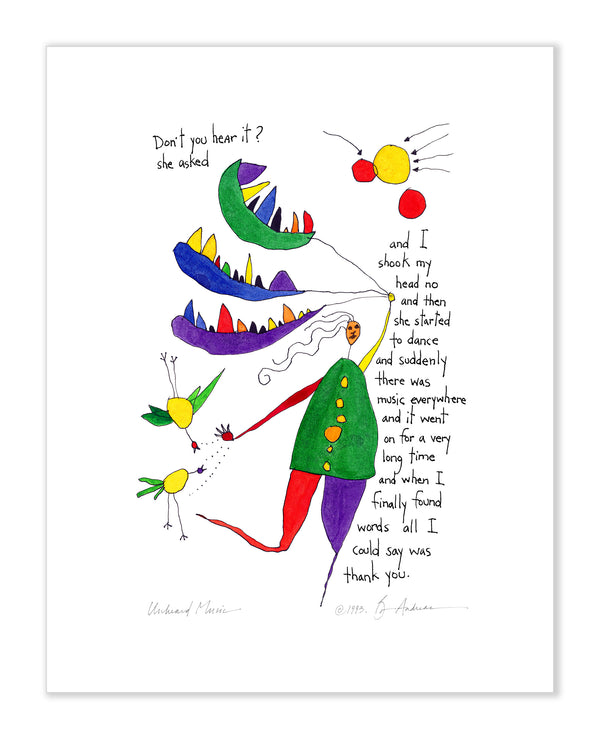 Don't you hear it?
she asked
and I
shook my
head no
and then
she started
to dance
and suddenly
there was
music everywhere
and it went
on for a very
long time
and when I
finally found
words all I
could say was
thank you.
Unheard Music
© 1993. Andreas